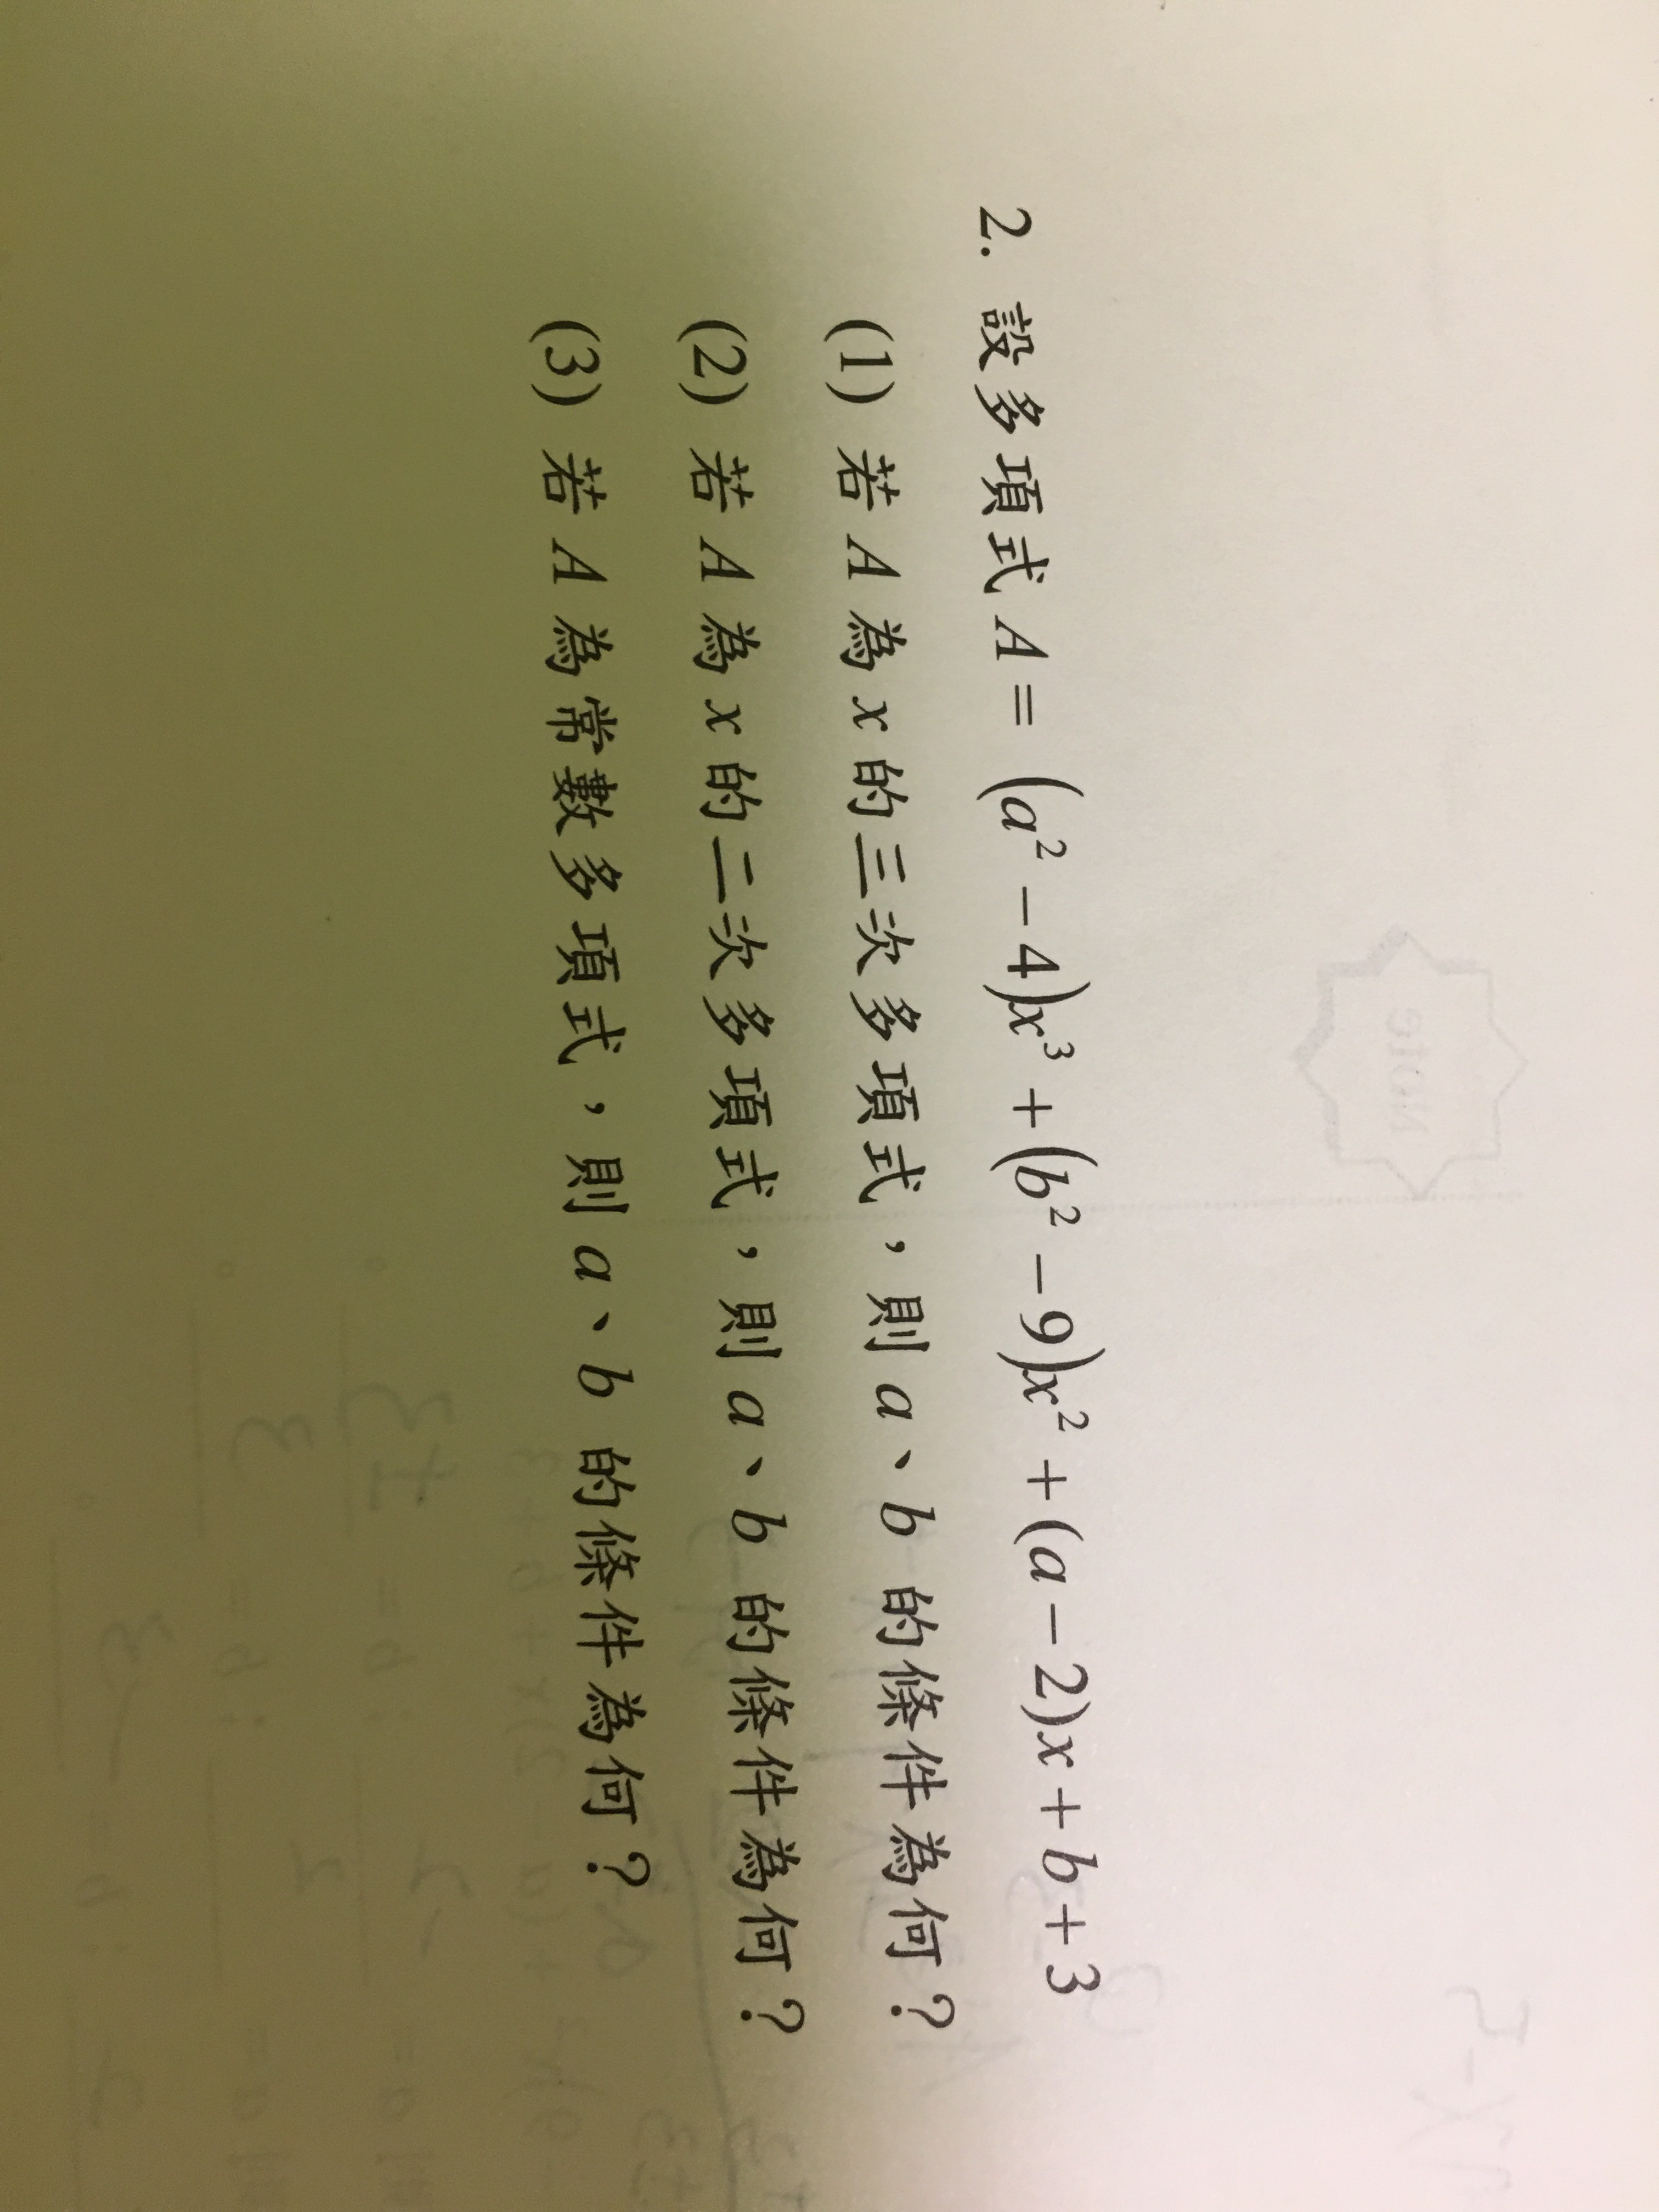 2. 設多項式 A = (a² − 4)x³ + (b² − 9)x² + (a − 2)x + b + 3
(1) 若 A 為 x 的三次多項式，則 a、b 的條件為何？
(2) 若 A 為 x 的二次多項式，則 a、b 的條件為何？
(3) 若 A 為常數多項式，則 a、b 的條件為何？